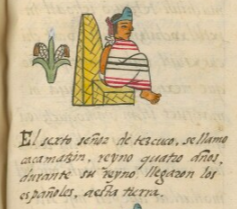 El sexto señor de tezcuco, se llamo
cacamatzin, reyno quatro años,
durante su reyno llegaron los
españoles, aesta tierra.